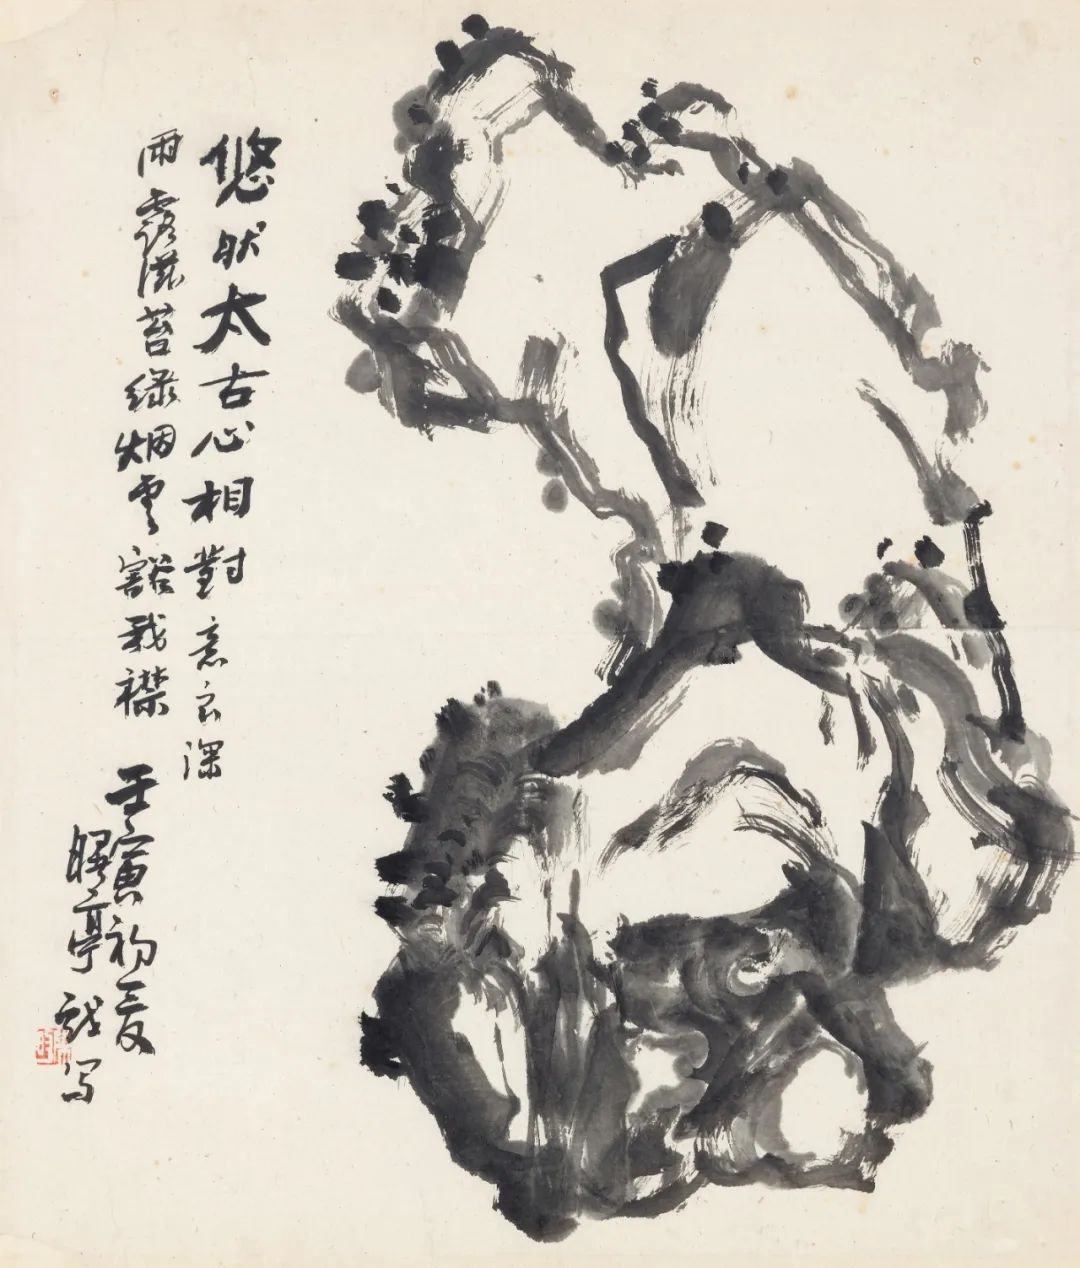 悠然太古心相對意言深
雨露滋苔綠烟雲豁我襟
壬寅初夏
暉亭戲写